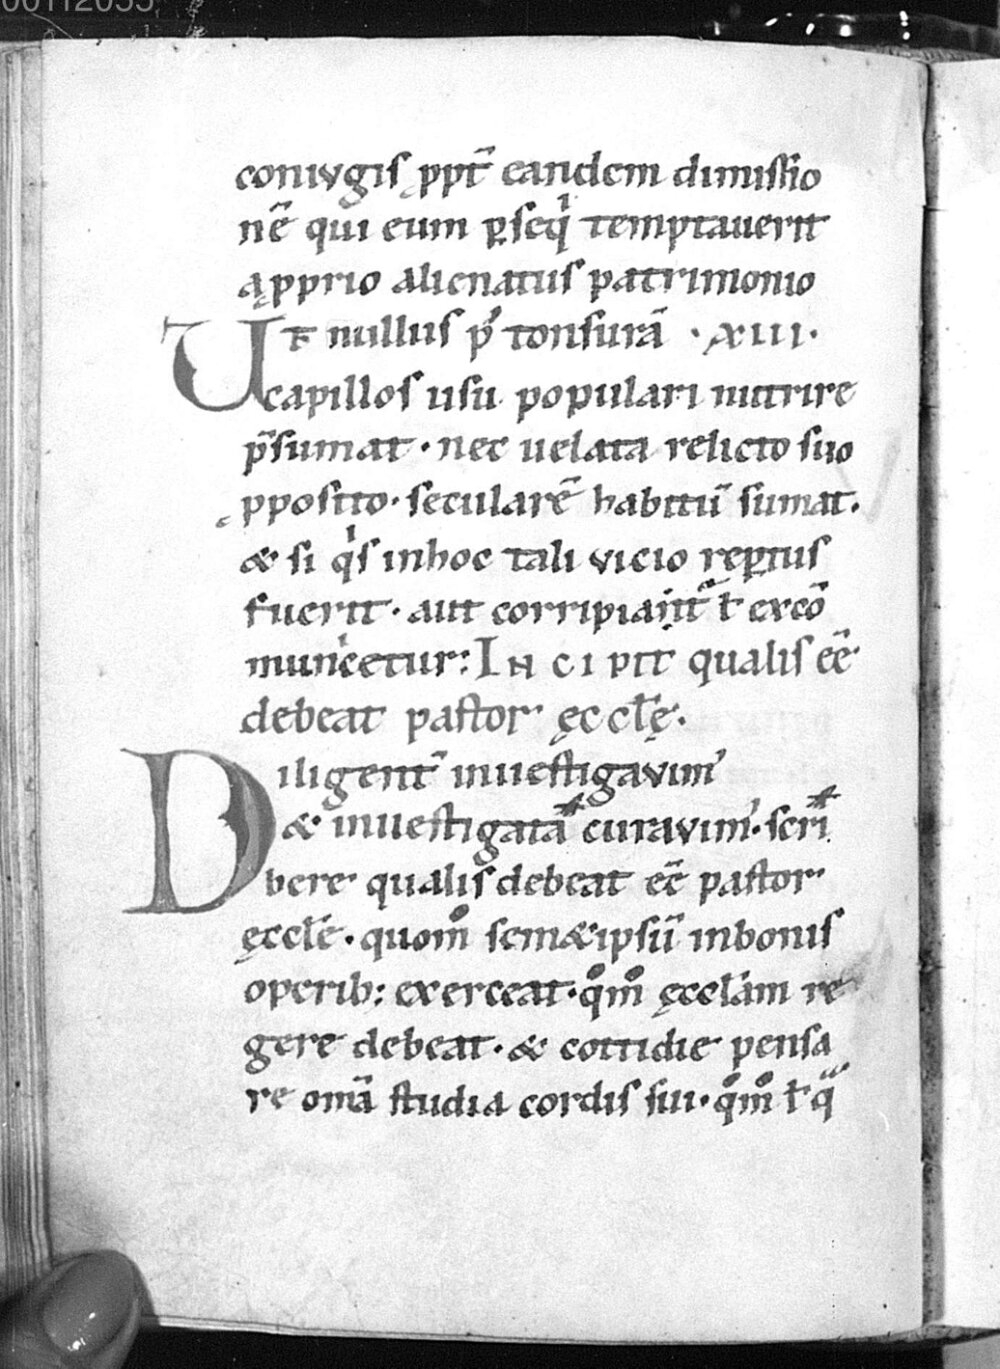 coniugis ꝓpt̄ eandem dimissio
nē qui eum ꝑseqͥ temptauerit
a ꝓprio alienatus patrimonio
Ut nullus p̉ tonsurā · XIII ·
capillos usu populari nutrire
p̄sumat · nec uelata relicto suo
ꝓposito · secularē habitū sumat ·
& si qͥs in hoc tali vicio reꝑtus
fuerit · aut corripiant᷑ ł excō
municetur: Incipit qualis eē
debeat pastor ęccłę ·
Diligent̄ inuestigavim᾽
& inuestigatā curavim᾽ · scri
bere qualis debeat eē pastor
ęccłe · quom̊ semetipsū in bonis
operib; exerceat · qͦm̊ ęccl̓am re
gere debeat · & cottidie pensa
re om̄a studia cordis sui · qͦm̊ ł qͣ